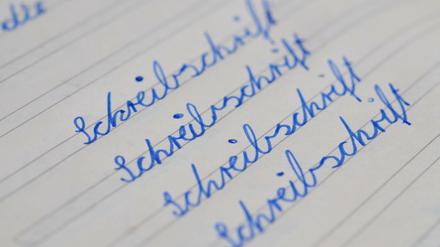 Schreibschrift
Schreibschrift
Schreibschrift
Schreibschrift